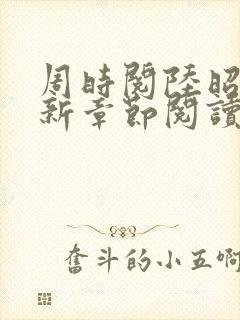 周時閱陸昭
新章節閱讀
奮斗的小五啊